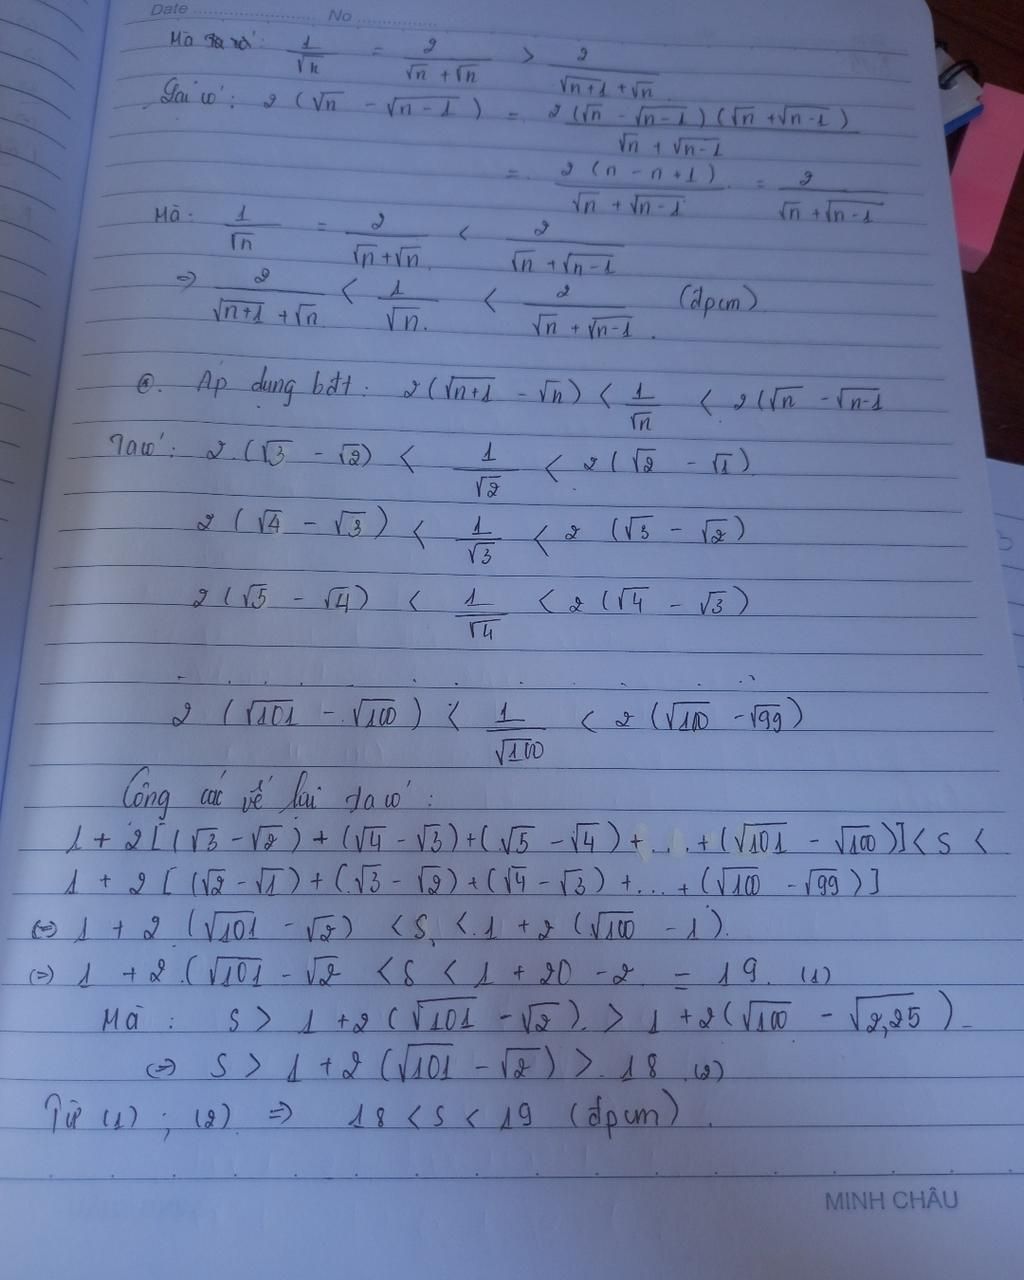 Date No
Mà ta có: 1/√n = 2/(√n + √n) > 2/(√n+1 + √n)
Lại có: 2 (√n - √n-1) = 2 (√n - √n-1) (√n + √n-1) / (√n + √n-1)
= 2 (n - n + 1) / (√n + √n-1) = 2/(√n + √n-1)
Mà: 1/√n = 2/(√n + √n) < 2/(√n + √n-1)
=> 2/(√n+1 + √n) < 1/√n < 2/(√n + √n-1) (đpcm)
Áp dụng bất: 2 (√n+1 - √n) < 1/√n < 2 (√n - √n-1
Ta có: 2 (√3 - √2) < 1/√2 < 2 (√2 - √1)
2 (√4 - √3) < 1/√3 < 2 (√3 - √2)
2 (√5 - √4) < 1/√4 < 2 (√4 - √3)
. . . . . . . . . .
2 (√101 - √100) < 1/√100 < 2 (√100 - √99)
Cộng các vế lại ta có:
1 + 2 [(√3 - √2) + (√4 - √3) + (√5 - √4) + ... + (√101 - √100)] < S <
1 + 2 [(√2 - √1) + (√3 - √2) + (√4 - √3) + ... + (√100 - √99)]
(=) 1 + 2 (√101 - √2) < S < 1 + 2 (√100 - 1).
(=) 1 + 2 (√101 - √2 < S < 1 + 20 - 2 = 19 (1)
Mà: S > 1 + 2 (√101 - √2) > 1 + 2 (√100 - √2,25)
(=) S > 1 + 2 (√101 - √2) > 18 (2)
Từ (1) ; (2) => 18 < S < 19 (đpcm).
MINH CHÂU